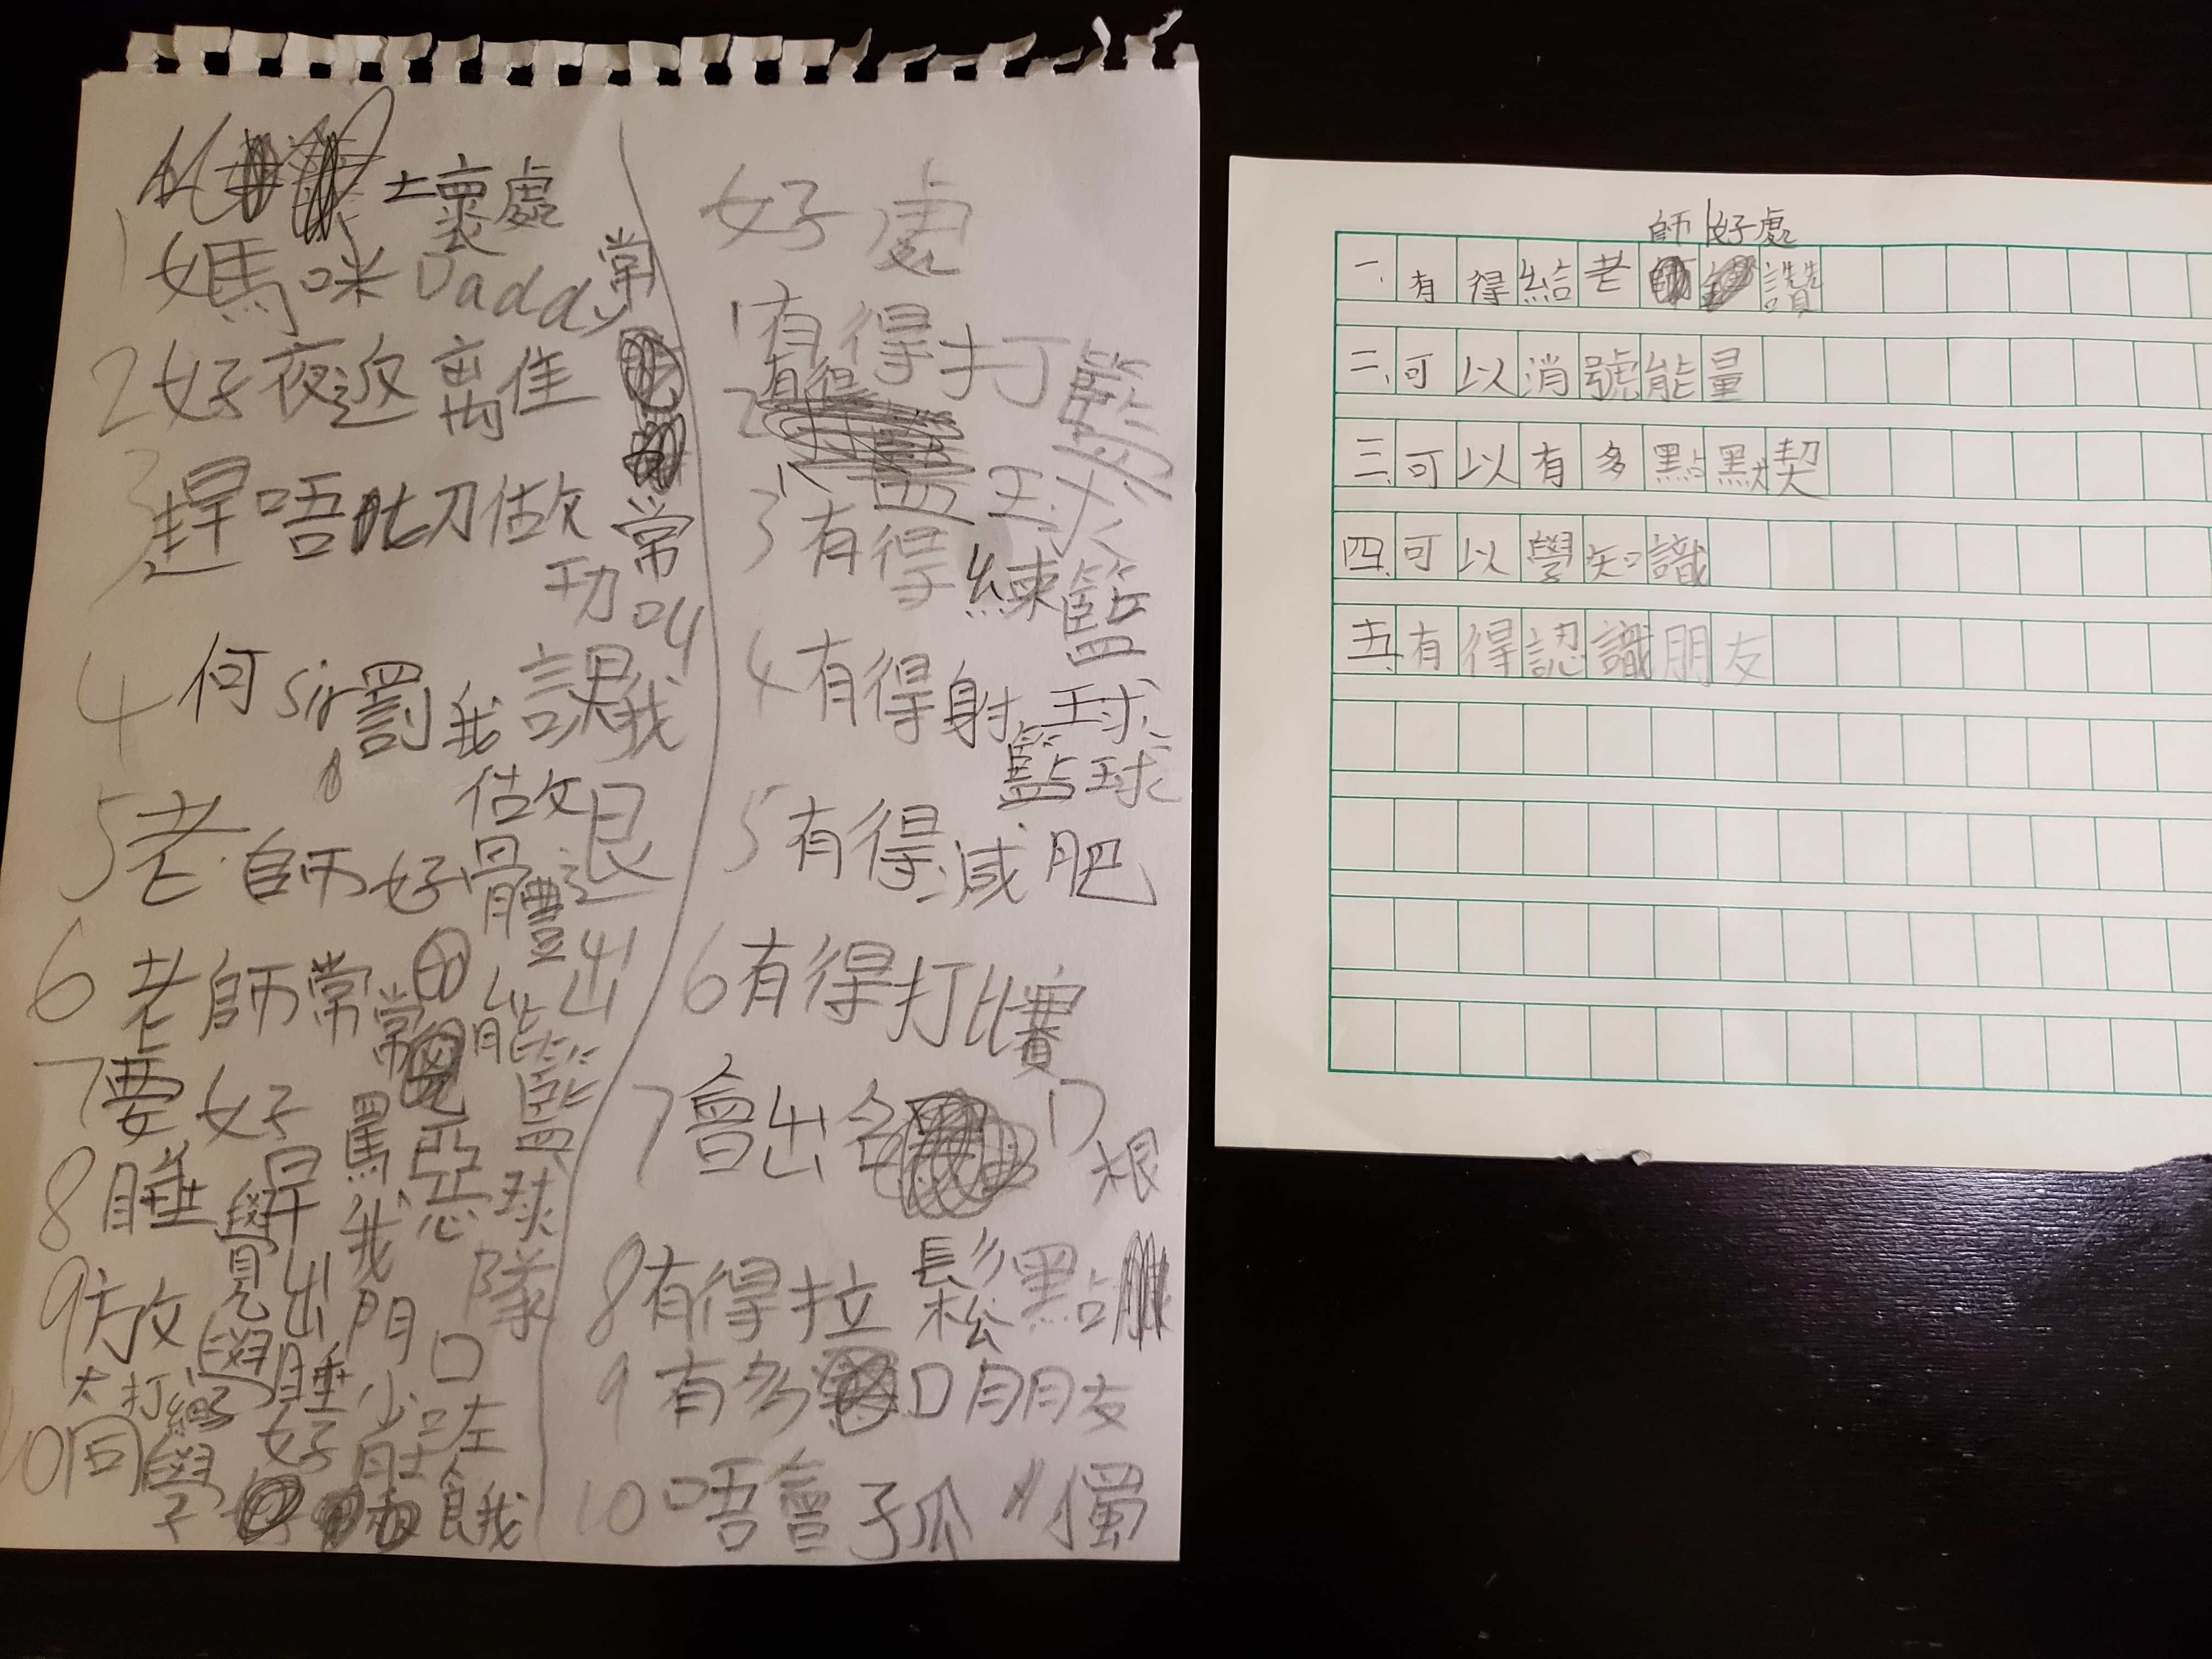 壞處
1 媽咪Daddy常常叫我退出籃球隊
2 好夜返離佳
3 趕唔切做功課
4 何sir罰我做體能
5 老師好惡
6 老師常常罵我
7 要好早出門口
8 睡覺睡少咗
9 放學好肚餓
10 同學
好處
1 有得打籃球
2
3 有得練籃球
4 有得射籃球
5 有得減肥
6 有得打比賽
7 會出名D
8 有得拉鬆點根
9 有多口朋友
10 唔會孤獨
師好處
一.有得給老讚
二.可以消號能量
三.可以有多點默契
四.可以學知識
五.有得認識朋友